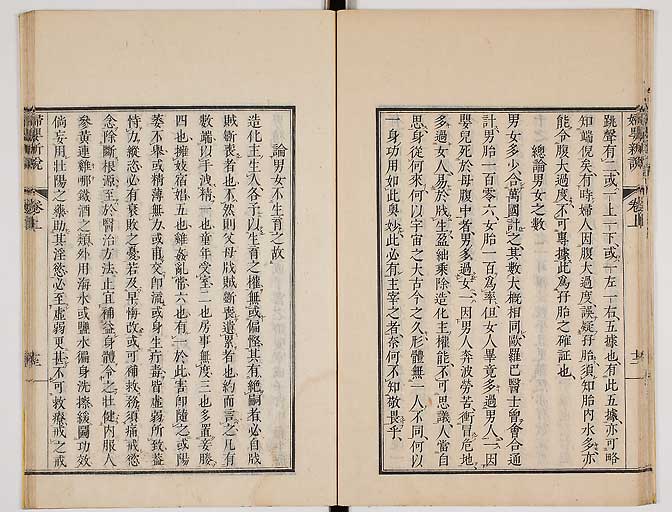 跳聲有二或一上一下或一左一右五據也有此五據亦可略
知端倪矣有時婦人因腹大過度誤疑孕胎須知胎內水多亦
能令腹大過度不可專據此爲孕胎之確証也
總論男女之數
男女多少合萬國計之其數大槪相同歐羅巴醫士曾會合通
計男胎一百零六女胎一百爲率但女人畢竟多過男人一因
嬰兒死於母腹中者男多過女一因男人奔波勞苦衝冒危地
多過女人易於戕生盈絀乘除造化主權能不可思議人當自
思身從何來何以宇宙之大古今之久形體無一人不同何以
一身功用如此奧妙此必有主宰之者奈何不知敬畏乎
婦嬰新說
卷上
十二
論男女不生育之故
造化主生人各予以生育之權無或偏慳其有絕嗣者必自戕
賊斲喪者也不然則父母戕賊斲喪遺累者也約而言之凡有
數端以手洩精一也童年受室二也房事無度三也多置妾媵
四也擁妓宿娼五也雞姦亂常六也有一於此害卽隨之或陽
萎不舉或精薄無力或甫交卽流或身生疔毒皆虛弱所致蓋
恃力縱慾必有衰敗之憂若及早悔改或可補救務須痛戒慾
念除斷根源至於醫治方法正宜補益身體令之壯健內服人
參黃連雞哪鐵酒之類外用海水或鹽水徧身洗擦緩圖功效
倘妄用壯陽之藥助其淫慾必至虛弱更甚不可救療戒之戒
婦嬰新說
卷上
十三